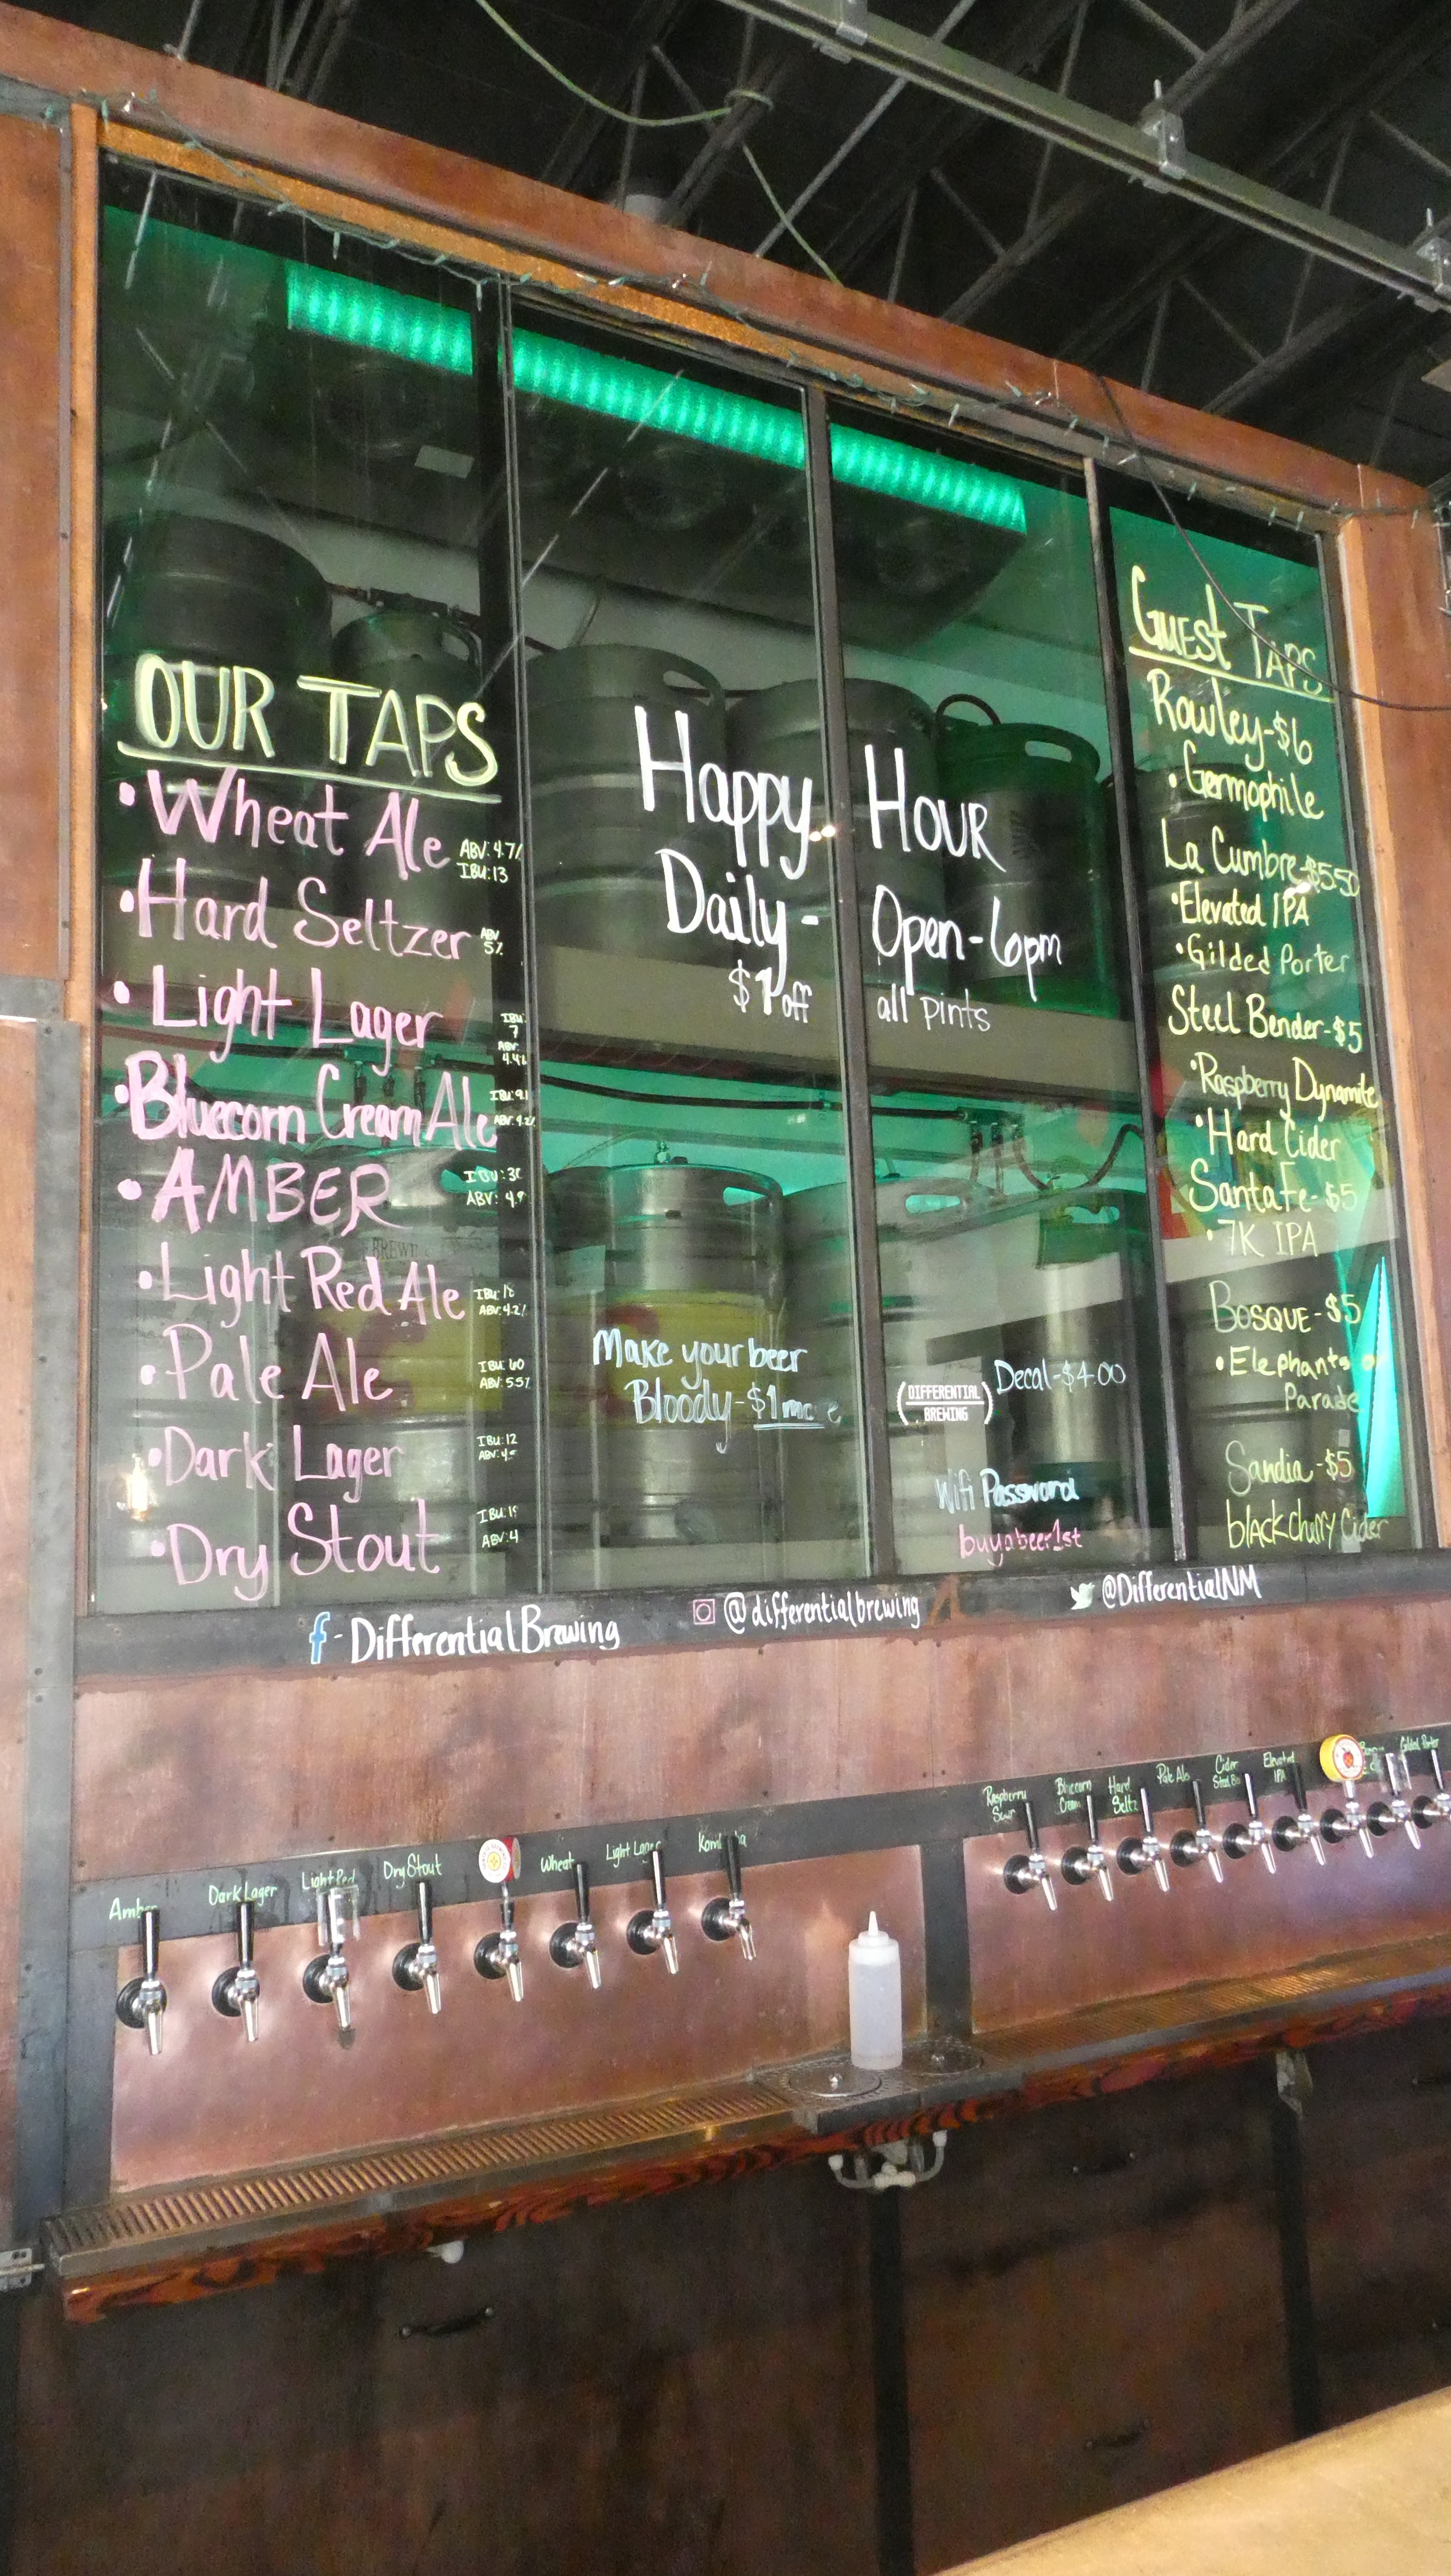 OUR TAPS
• Wheat Ale
ABV: 4.7%
IBU: 13
• Hard Seltzer
ABV
5%
• Light Lager
IBU:
7
ABV:
4.4%
• Bluecorn Cream Ale
IBU: 9.1
ABV: 4.2%
• AMBER
IBU: 30
ABV: 4.9
• Light Red Ale
ABV: 4.2%
• Pale Ale
IBU: 60
ABV: 5.5%
• Dark Lager
IBU: 12
• Dry Stout
ABV: 4
Happy HOUR
Daily - Open-6pm
$1 off all pints
Make your beer
Bloody-$1 more
DIFFERENTIAL
BREWING
Decal-$4.00
Wifi Password
buyabeer1st
Guest TAPS
Rowley-$6
• Germophile
La Cumbre-$5.50
• Elevated IPA
• Gilded Porter
Steel Bender-$5
• Raspberry Dynamite
• Hard Cider
Santa Fe-$5
• 7K IPA
BOSQUE-$5
• Elephants on
Parade
Sandia-$5
black cherry Cider
f-DifferentialBrewing
@differentialbrewing
@DifferentialNM
Amber
Dark Lager
Light Red
Dry Stout
Wheat
Light Lager
Raspberry
Sour
Bluecorn
Cream
Hard
Seltz
Pale Ale
Cider
Steel
Elevated
IPA
Gilded Porter